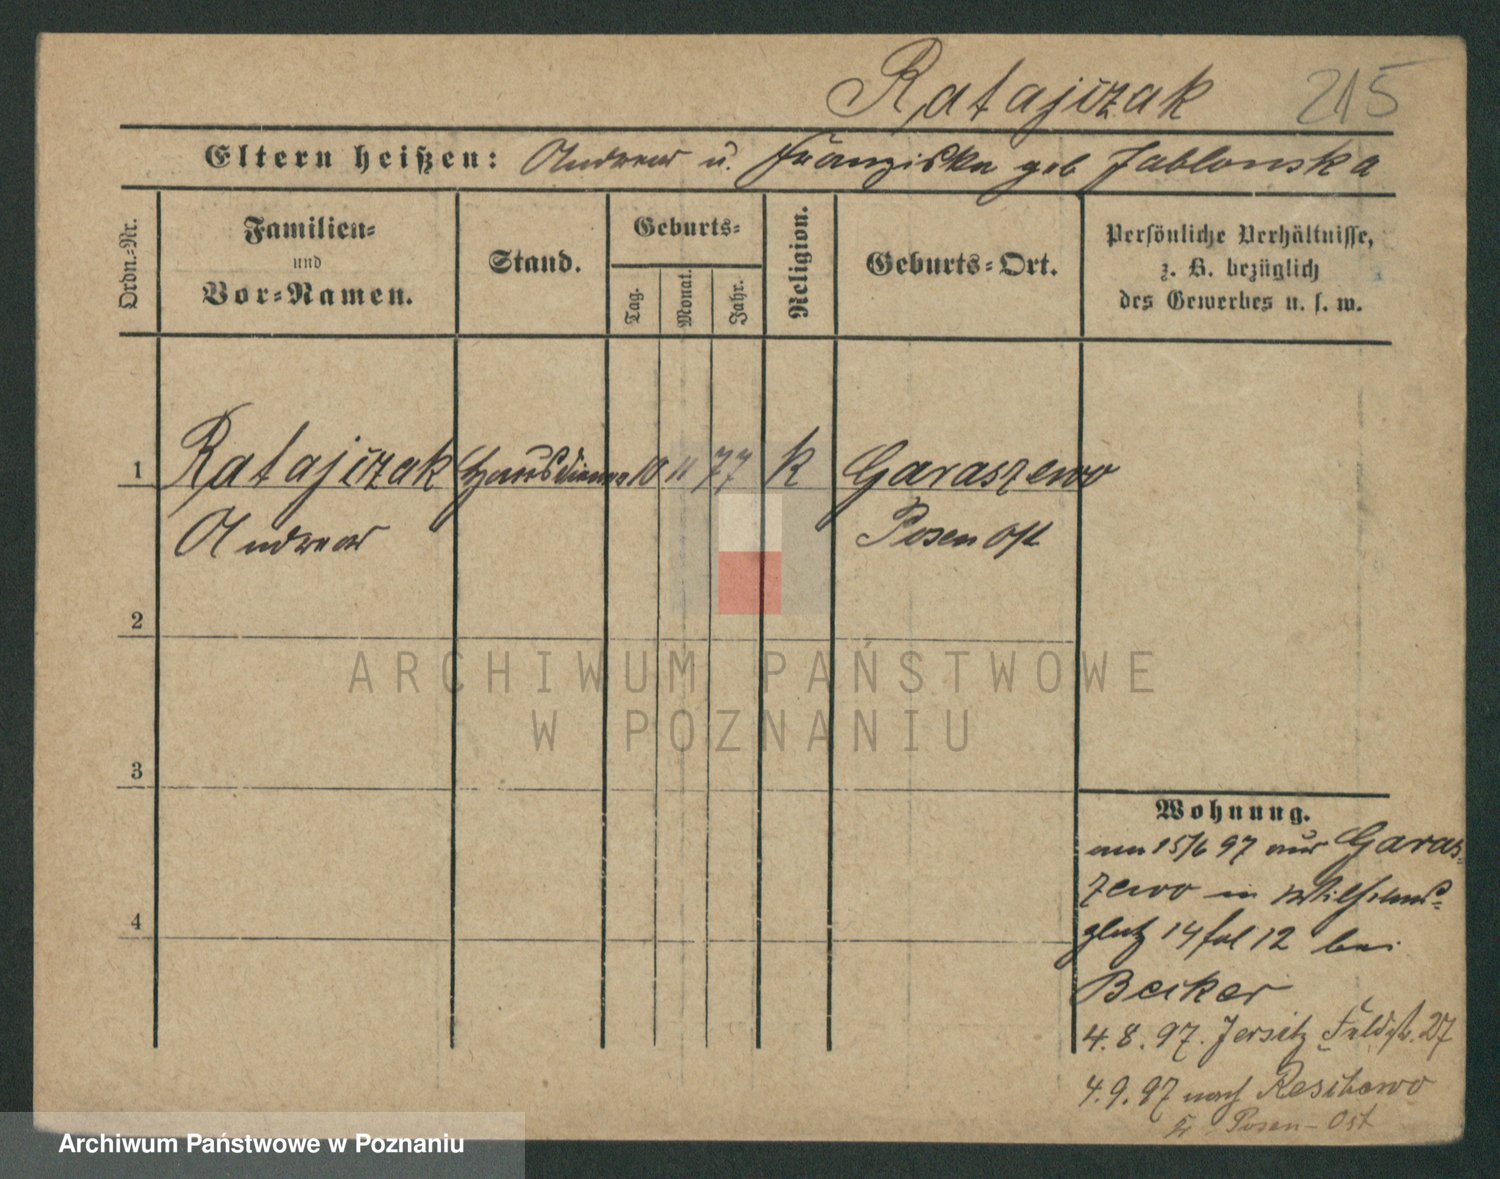 Ratajczak 215
Eltern heißen: Andreas u. Franziska geb Jablonska
Ordn.-Nr.
Familien-
und
Vor-Namen.
Stand.
Geburts-
Tag.
Monat.
Jahr.
Religion.
Geburts-Ort.
Persönliche Verhältnisse,
z. B. bezüglich
des Gewerbes u. s. w.
1 Ratajczak Hausdiener 10 11 77 K Garaszewo
Andreas Posen Ost
2
3
4
Wohnung.
am 15/6 97 aus Garas-
zewo in Wilhelms-
platz 14 bei
Becker
4. 8. 97. Jersitz Feldstr. 27
4. 9. 97 nach
Kr Posen-Ost
ARCHIWUM PAŃSTWOWE
W POZNANIU
Archiwum Państwowe w Poznaniu